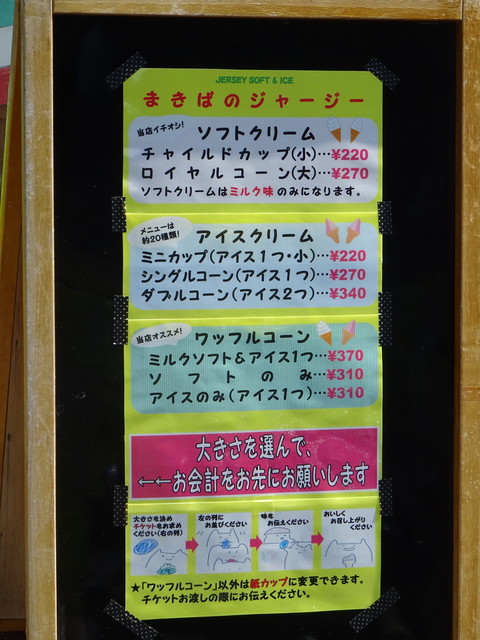 JERSEY SOFT & ICE
まきばのジャージー
当店イチオシ!
ソフトクリーム
チャイルドカップ(小)…¥220
ロイヤルコーン(大)…¥270
ソフトクリームはミルク味のみになります。
メニューは
約20種類!
アイスクリーム
ミニカップ(アイス1つ・小)…¥220
シングルコーン(アイス1つ)…¥270
ダブルコーン(アイス2つ)…¥340
当店オススメ!
ワッフルコーン
ミルクソフト&アイス1つ…¥370
ソフトのみ…¥310
アイスのみ(アイス1つ)…¥310
大きさを選んで、
←←お会計をお先にお願いします
大きさを決め
チケットをお求め
ください(右の列)
左の列に
お並びください
味を
お伝えください
おいしく
お召し上がり
ください
★「ワッフルコーン」以外は紙カップに変更できます。
チケットお渡しの際にお伝えください。